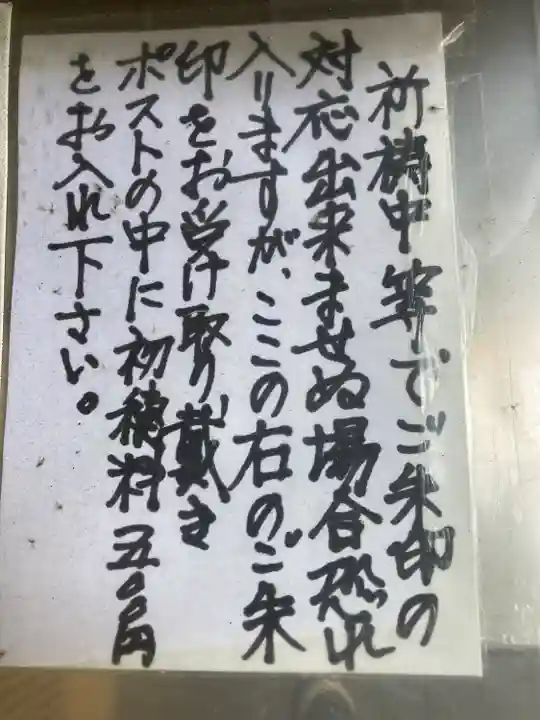 祈祷中等でご朱印の
対応出来ませぬ場合恐れ
入りますが、ここの右のご朱
印をお受け取り戴き
ポストの中に初穂料五〇〇円
をお入れ下さい。